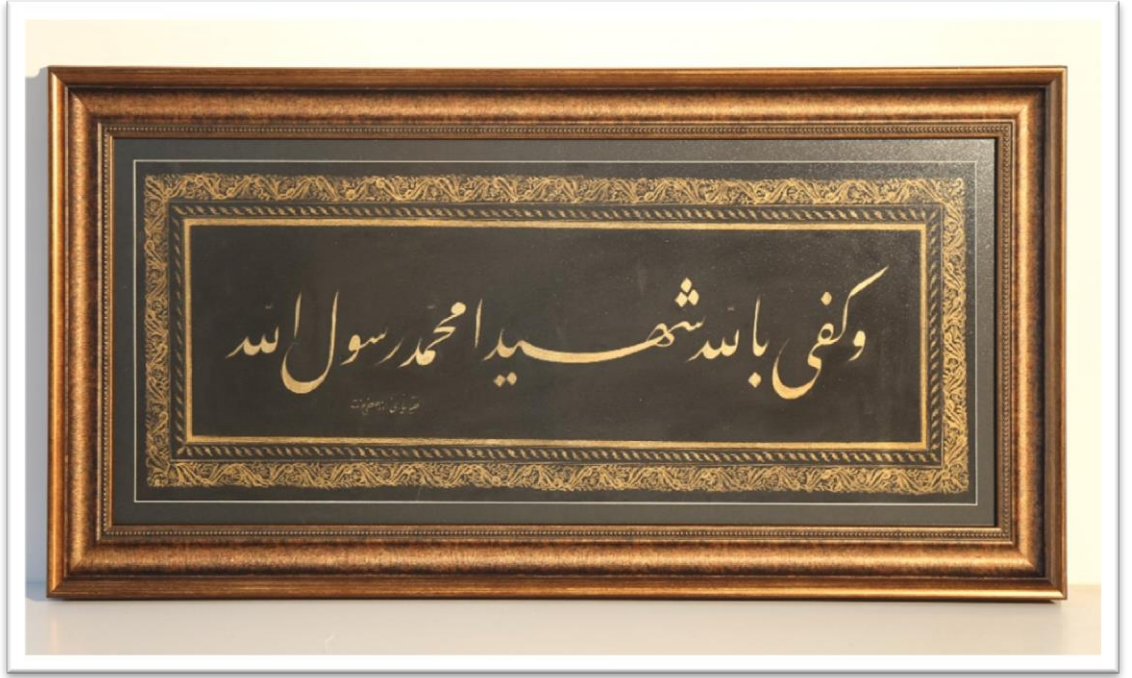 وكفى بالله شهيدا محمّد رسول الله